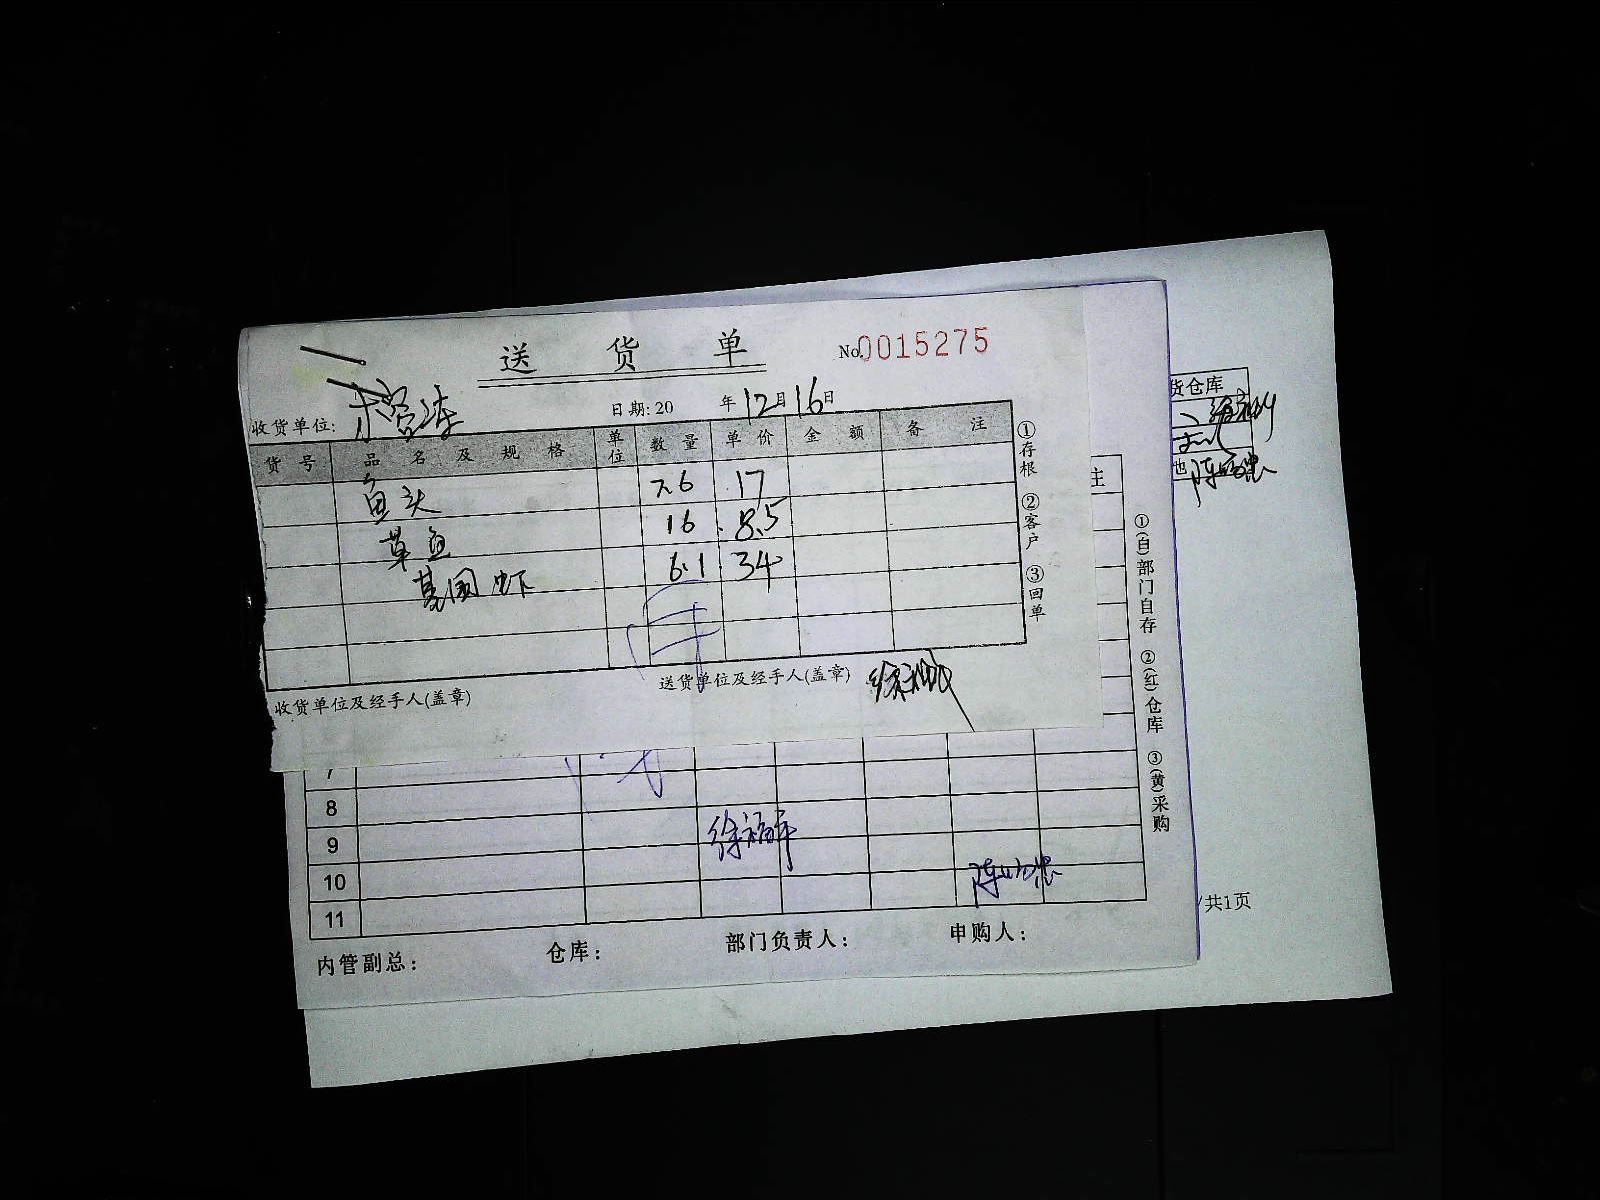 送货单
No.0015275
收货单位:
日期: 20 年12月16日
货号 品名及规格 单位 数量 单价 金额 备注
鱼头 7.6 17
草鱼 16 8.5
基围虾 6.1 34
收货单位及经手人(盖章)
送货单位及经手人(盖章)
①存根 ②客户 ③回单
注
7
8
9
徐福平
10
11
内管副总:
仓库:
部门负责人:
申购人:
①(自)部门自存 ②(红)仓库 ③(黄)采购
货仓库
共1页